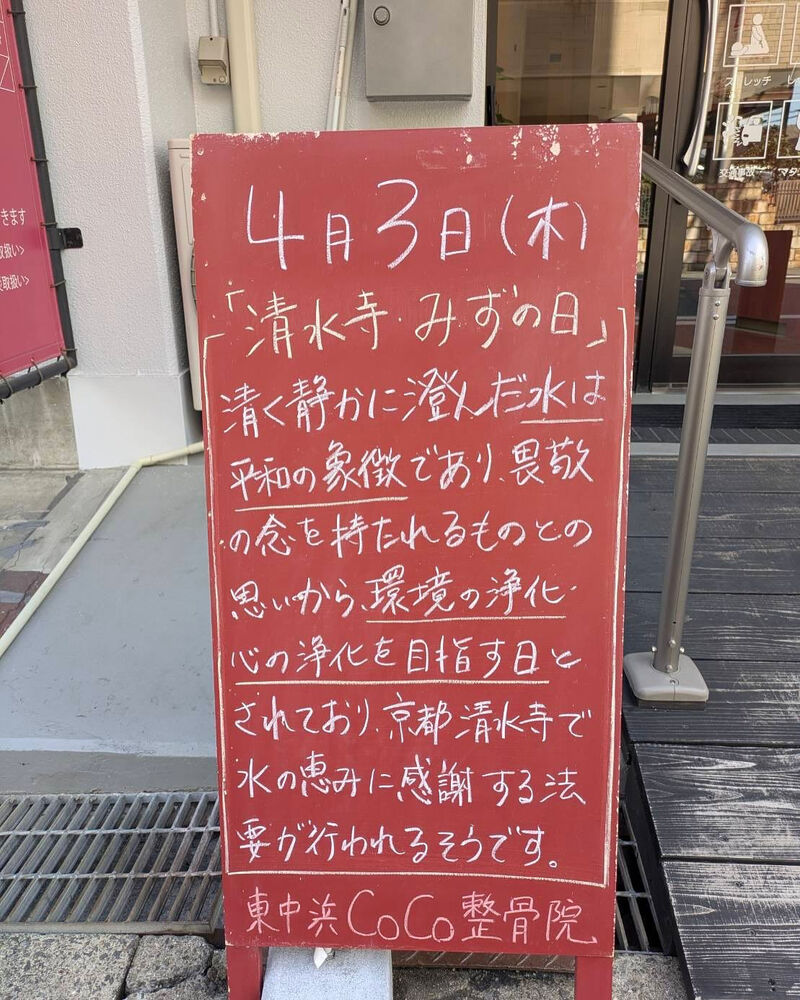 4月3日(木)
「清水寺・みずの日」
清く静かに澄んだ水は
平和の象徴であり、畏敬
の念を持たれるものとの
思いから、環境の浄化・
心の浄化を目指す日と
されており、京都清水寺で
水の恵みに感謝する法
要が行われるそうです。
東中浜CoCo整骨院
きます
取扱い>
取扱い>
ストレッチ
交通事故
マタ